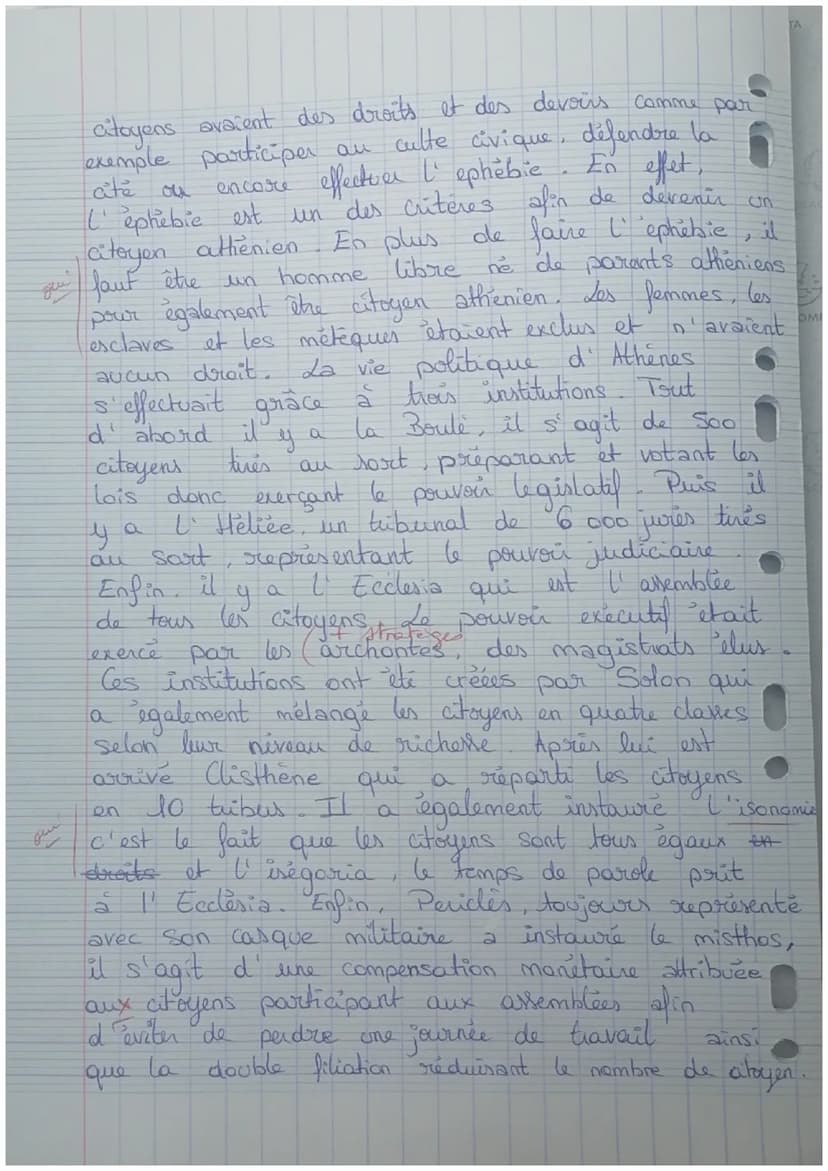 TA
citoyens avaient des droits et des devoirs comme par
exemple participer au culte civique, défendre la
cité ou encore effectuer l'ephébie. En effet,
l'éphébie est un des critères afin de devenir un
citoyen athénien. En plus de faire l'ephébie, il
oui faut être un homme libre né de parents athéniens
pour également être citoyen athénien. Les femmes, les
esclaves et les métèques étaient exclus et n'avaient
aucun droit. La vie politique d'Athènes
s'effectuait grâce à trois institutions. Tout
d'abord il y a la Boulé, il s'agit de 500
citoyens tirés au sort, préparant et votant les
lois donc exerçant le pouvoir législatif. Puis il
y a l'Héliée, un tribunal de 6 000 jurés tirés
au sort, représentant le pouvoir judiciaire.
Enfin, il y a l'Ecclesia qui est l'assemblée
de tous les citoyens. Le pouvoir exécutif était
+ stratèges
exercé par les (archontes, des magistrats élus.
Ces institutions ont été créées par Solon qui
a également mélangé les citoyens en quatre classes
selon leur niveau de richesse. Après lui est
arrivé Clisthène qui a réparti les citoyens
en 10 tribus. Il a également instauré l'isonomie
oui c'est le fait que les citoyens sont tous égaux en
droits et l'iségoria, le temps de parole prit
à l'Ecclésia. Enfin, Periclès, toujours représenté
avec son casque militaire a instauré le misthos,
il s'agit d'une compensation monétaire attribuée
aux citoyens participant aux assemblées afin
d'éviter de perdre une journée de travail ainsi
que la double filiation réduisant le nombre de citoyen.